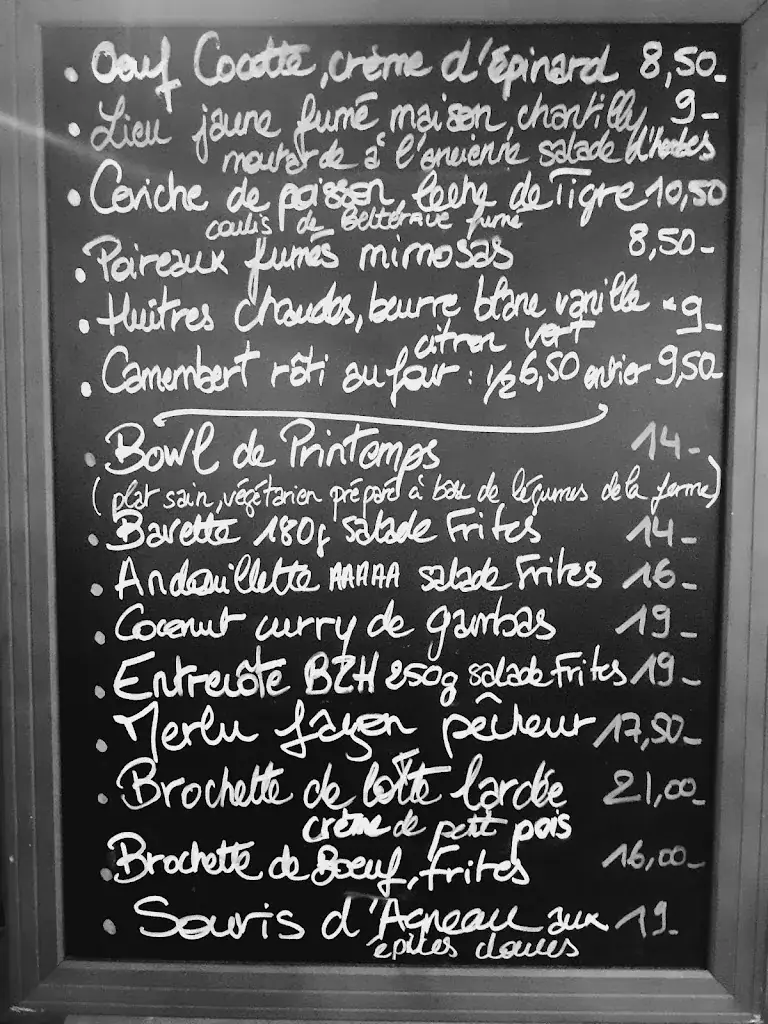 • Oeuf Cocotte, crème d'épinard 8,50-
• Lieu jaune fumé maison, chantilly 9-
moutarde à l'ancienne salade d'herbes
• Ceviche de poisson, leche de Tigre 10,50
coulis de Betterave fumé
• Poireaux fumés mimosas 8,50-
• Huitres chaudes, beurre blanc vanille - 9-
citron vert
• Camembert rôti au four : 1/2 6,50 entier 9,50
• Bowl de Printemps 14-
(plat sain, végétarien préparé à base de légumes de la ferme)
• Bavette 180g salade Frites 14-
• Andouillette AAAAA salade Frites 16-
• Coconut curry de gambas 19-
• Entrecôte BZH 250g salade Frites 19-
• Merlu façon pêcheur 17,50-
• Brochette de lotte lardée 21,00-
crème de petit pois
• Brochette de Boeuf, frites 16,00-
• Souris d'Agneau aux 19-
épices douces